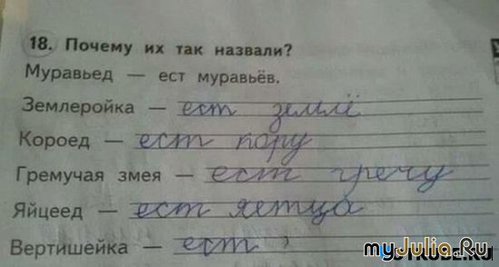 18. Почему их так назвали?
Муравьед — ест муравьёв.
Землеройка — ест землё
Короед — ест кору
Гремучая змея — ест гречу
Яйцеед — ест яетца
Вертишейка — ест
myJulia.Ru